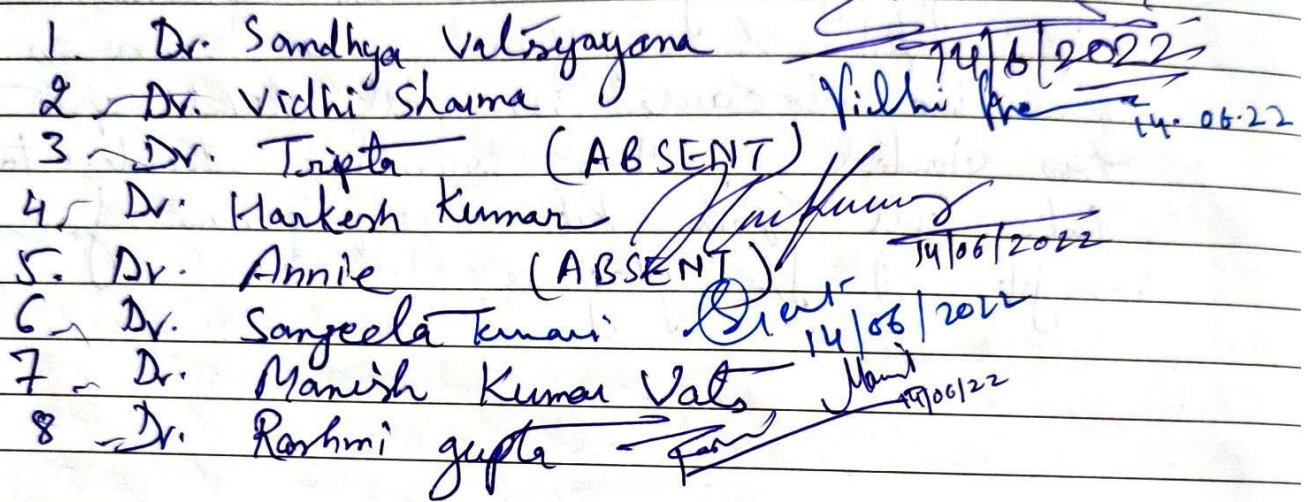 1. Dr. Sandhya Vatsyayana 14/6/2022
2 Dr. Vidhi Sharma Vidhi 14.06.22
3 Dr. Tripta (ABSENT)
4 Dr. Harkesh Kumar 14/06/2022
5. Dr. Annie (ABSENT)
6 Dr. Sangeeta Kumari 14/06/2022
7 Dr. Manish Kumar Vats 14/06/22
8 Dr. Rashmi gupta